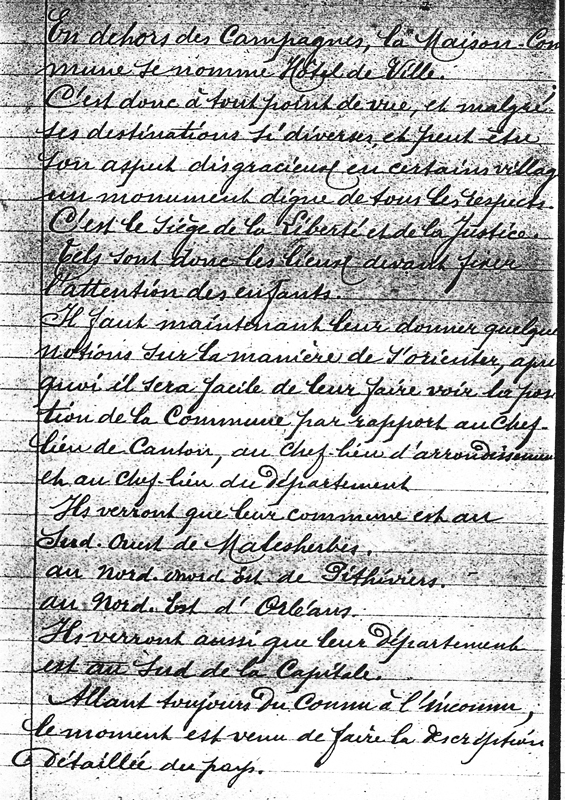 En dehors des Campagnes, la Maison-Com
mune se nomme Hôtel de Ville.
C'est donc à tout point de vue, et malgré
ses destinations si diverses, et peut-être
son aspect disgracieux en certains villag
un monument digne de tous les respects.
C'est le siège de la Liberté et de la Justice.
Tels sont donc les lieux devant fixer
l'attention des enfants.
Il faut maintenant leur donner quelque
notions sur la manière de s'orienter, apre
quoi il sera facile de leur faire voir la posi
tion de la Commune par rapport au Chef-
lieu de Canton, au Chef-lieu d'arrondissemen
et au Chef-lieu du département
Ils verront que leur commune est au
Sud. Ouest de Malesherbes.
au Nord. Nord Est de Pithiviers.
au Nord. Est d'Orléans.
Ils verront aussi que leur département
est au Sud de la Capitale.
Allant toujours du Connu à l'inconnu,
le moment est venu de faire la description
détaillée du pays.